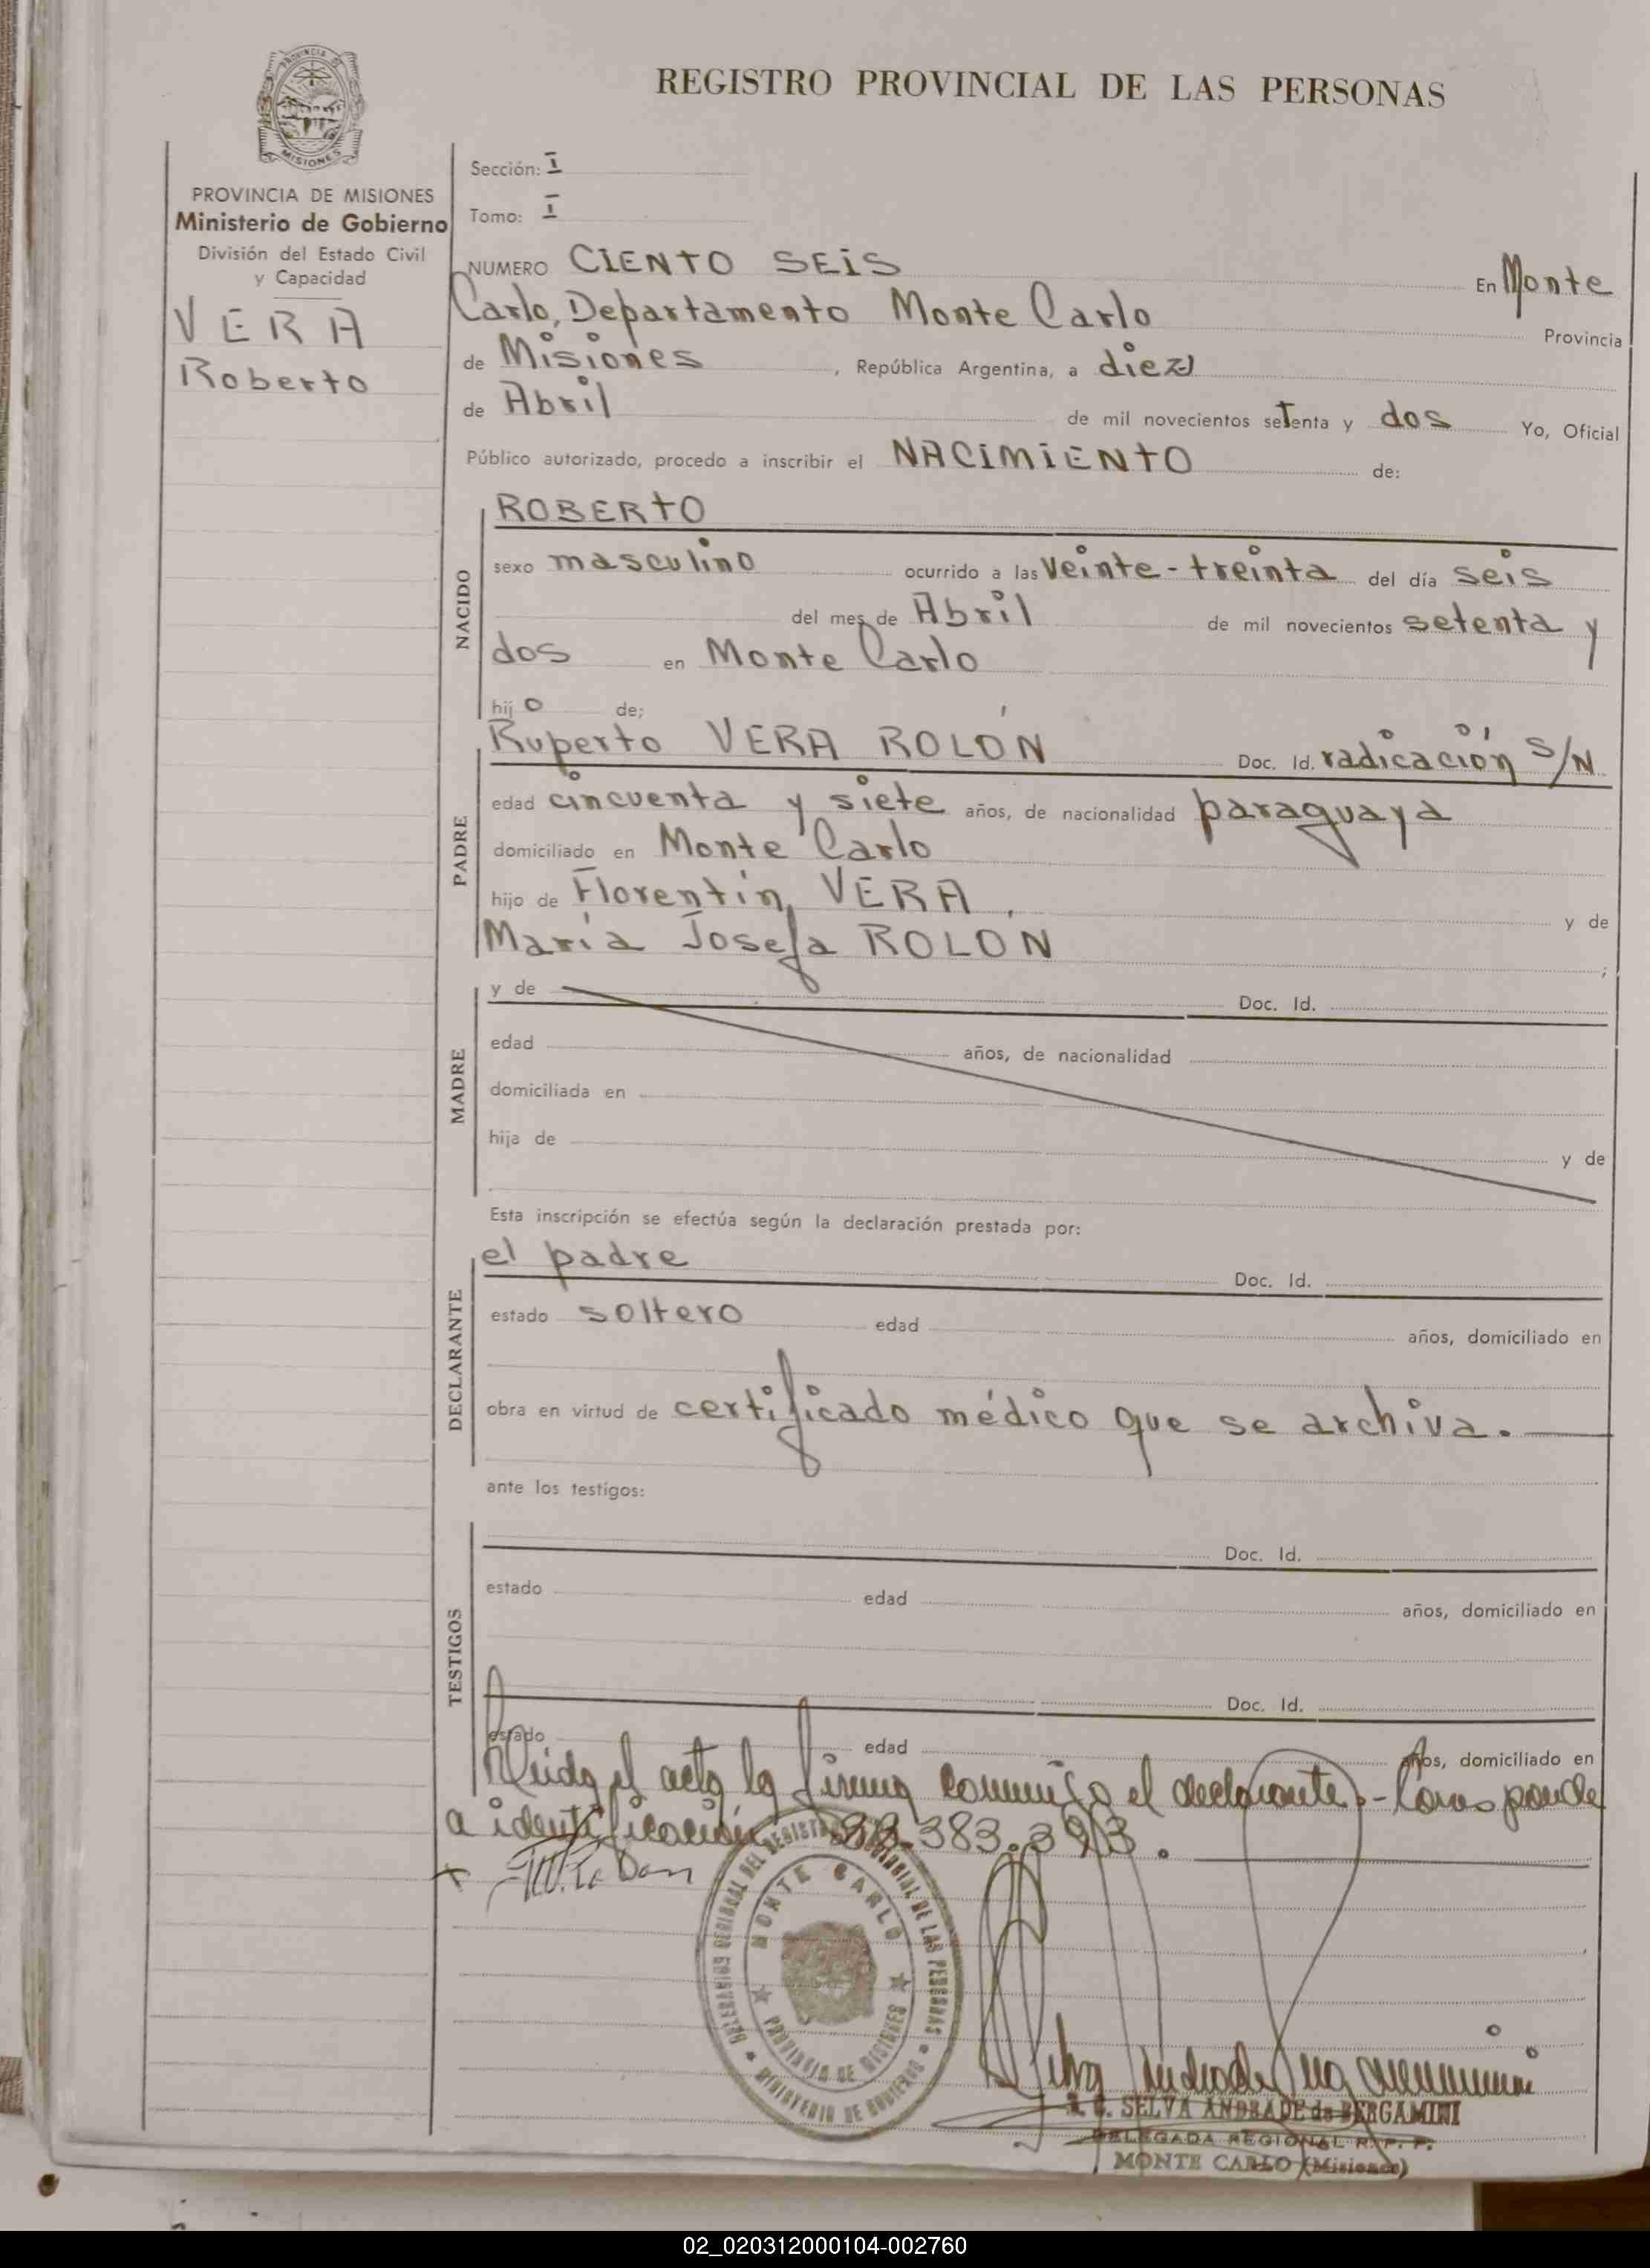 PROVINCIA DE MISIONES
REGISTRO PROVINCIAL DE LAS PERSONAS
PROVINCIA DE MISIONES
Ministerio de Gobierno
División del Estado Civil
y Capacidad
VERA
Roberto
Sección: I
Tomo: I
NUMERO CIENTO SEIS En Monte
Carlo, Departamento Monte Carlo Provincia
de Misiones, República Argentina, a diez
de Abril de mil novecientos seTenta y dos Yo, Oficial
Público autorizado, procedo a inscribir el NACIMIENTO de:
NACIDO
ROBERTO
sexo masculino ocurrido a las veinte-treinta del día seis
del mes de Abril de mil novecientos setenta y
dos en Monte Carlo
hijo de;
PADRE
Ruperto VERA ROLÓN Doc. Id. radicación S/N
edad cincuenta y siete años, de nacionalidad paraguaya
domiciliado en Monte Carlo
hijo de Florentín VERA y de
María Josefa ROLÓN ;
MADRE
y de Doc. Id.
edad años, de nacionalidad
domiciliada en
hija de y de
Esta inscripción se efectúa según la declaración prestada por:
DECLARANTE
el padre Doc. Id.
estado soltero edad años, domiciliado en
obra en virtud de certificado médico que se archiva.
ante los testigos:
TESTIGOS
Doc. Id.
estado edad años, domiciliado en
Doc. Id.
estado edad años, domiciliado en
Leida el acta la firma conmigo el declarante.- Corresponde
a identificación 383.393.
DELEGACION REGIONAL DEL REGISTRO PROVINCIAL DE LAS PERSONAS
MINISTERIO DE GOBIERNO
MONTE CARLO
PROVINCIA DE MISIONES
SELVA ANDRADE de BERGAMINI
DELEGADA REGIONAL R. P. P.
MONTE CARLO (Misiones)
02_020312000104-002760